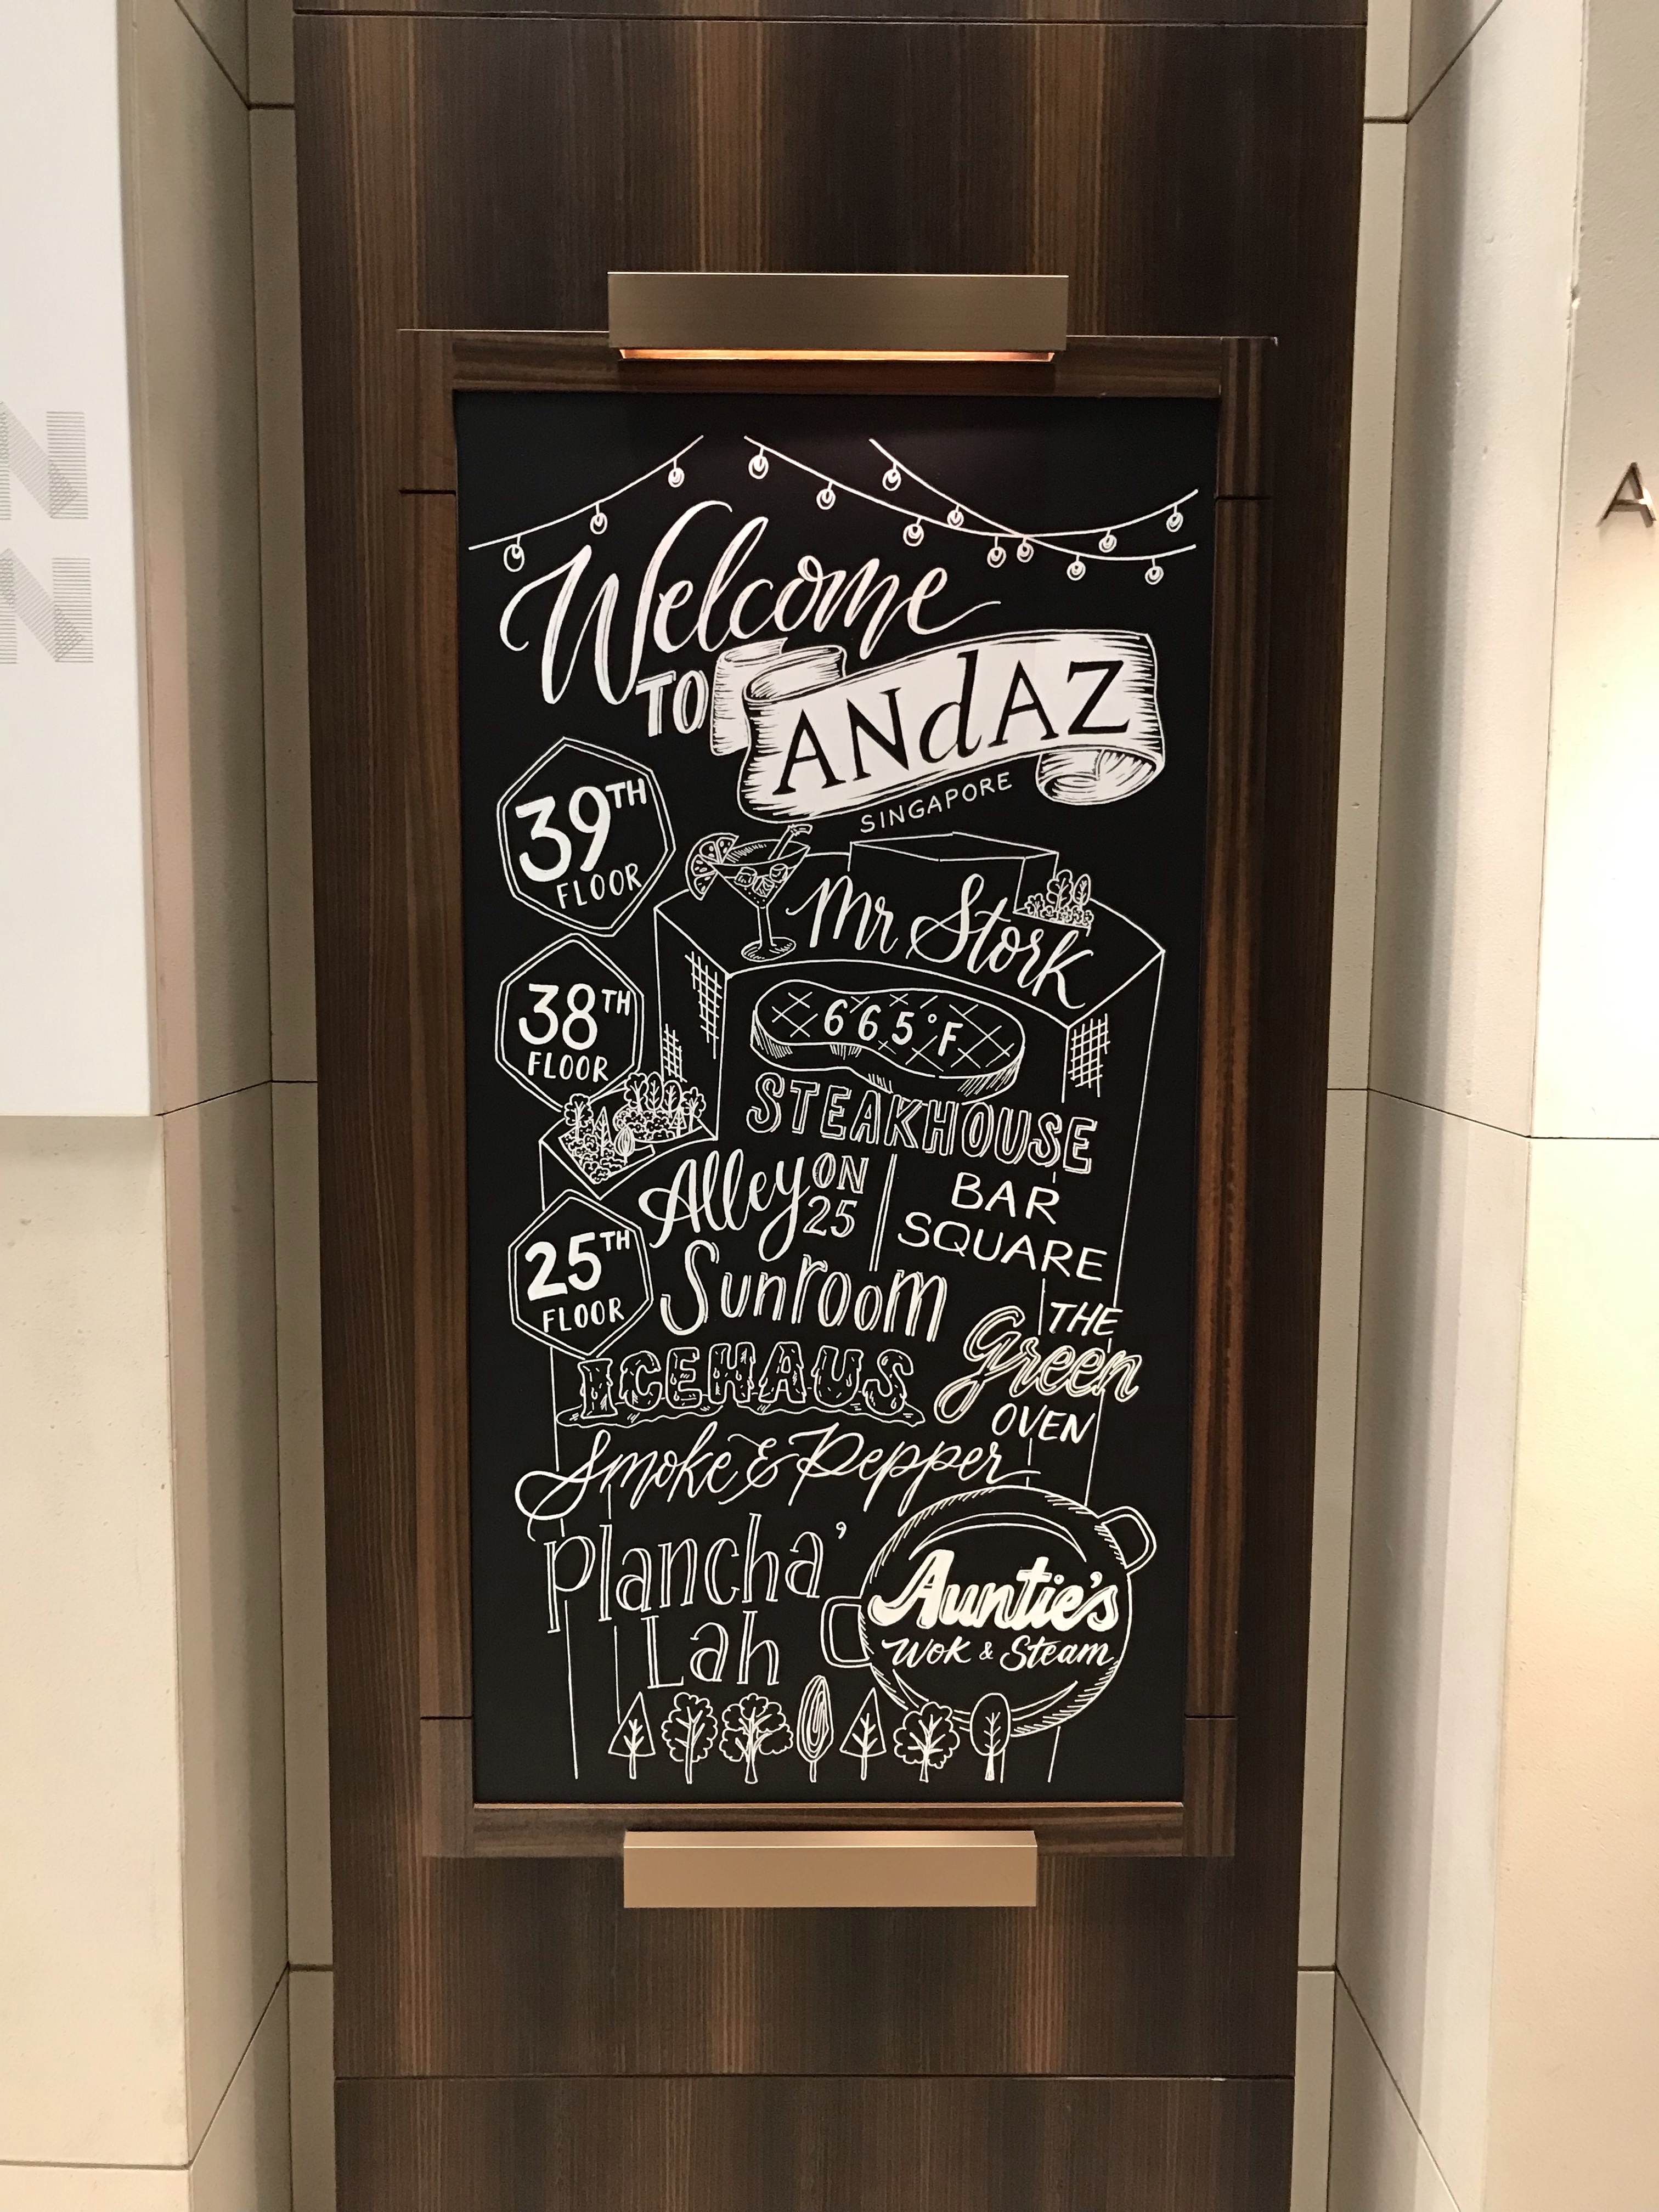 Welcome
TO ANdAZ
SINGAPORE
39TH
FLOOR
Mr Stork
38TH
FLOOR
665°F
STEAKHOUSE
25TH
FLOOR
Alley ON
25
BAR
SQUARE
Sunroom
THE
Green
OVEN
ICEHAUS
Smoke & Pepper
Plancha'
Lah
Auntie's
Wok & Steam
N
N
A